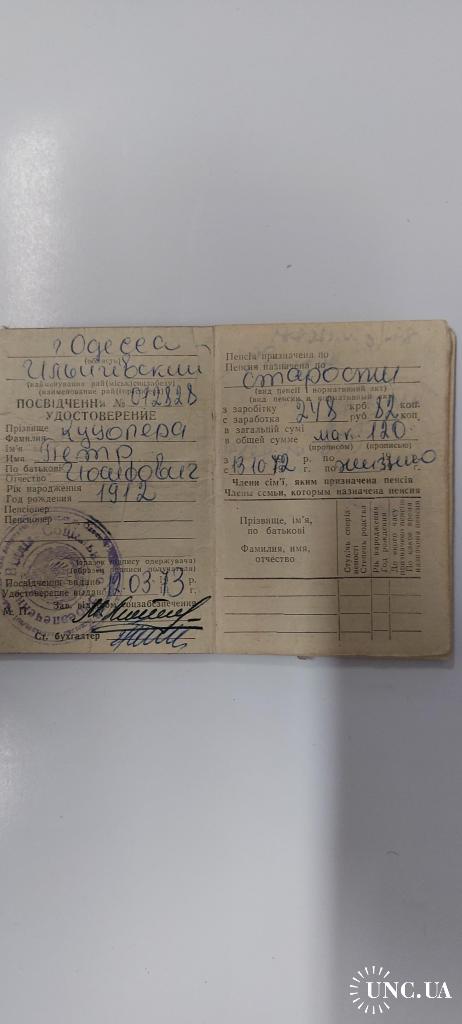 г Одесса
(область)
Ильичевский
ПОСВІДЧЕННЯ № 072328
УДОСТОВЕРЕНИЕ
Прізвище
Фамилия Куцопера
Ім'я
Имя Петр
По батькові
Отчество
Рік народження 1912
Год рождения
Пенсіонер
Пенсионер
(зразок підпису одержувача)
(образец подписи получателя)
Посвідчення видано 12.03.73 р.
Удостоверение выдано г.
М. П. Зав. відділом соцзабезпечення
Ст. бухгалтер
Пенсія призначена по
Пенсия назначена по старости
(вид пенсії і нормативний акт)
(вид пенсии и нормативный акт)
з заробітку 248 крб. 82 коп.
с заработка руб. коп.
в загальній сумі мак. 120
в общей сумме (прописом) (прописью)
з 13 10 72 р. по жизнено р.
с г. по г.
Члени сім'ї, яким призначена пенсія
Члены семьи, которым назначена пенсия
Прізвище, ім'я,
по батькові
Фамилия, имя,
отчество
Ступінь споріднення
Степень родства
Рік народження
Год рождения
До якого часу призначена пенсія
По какое время назначена пенсия
UNC.UA